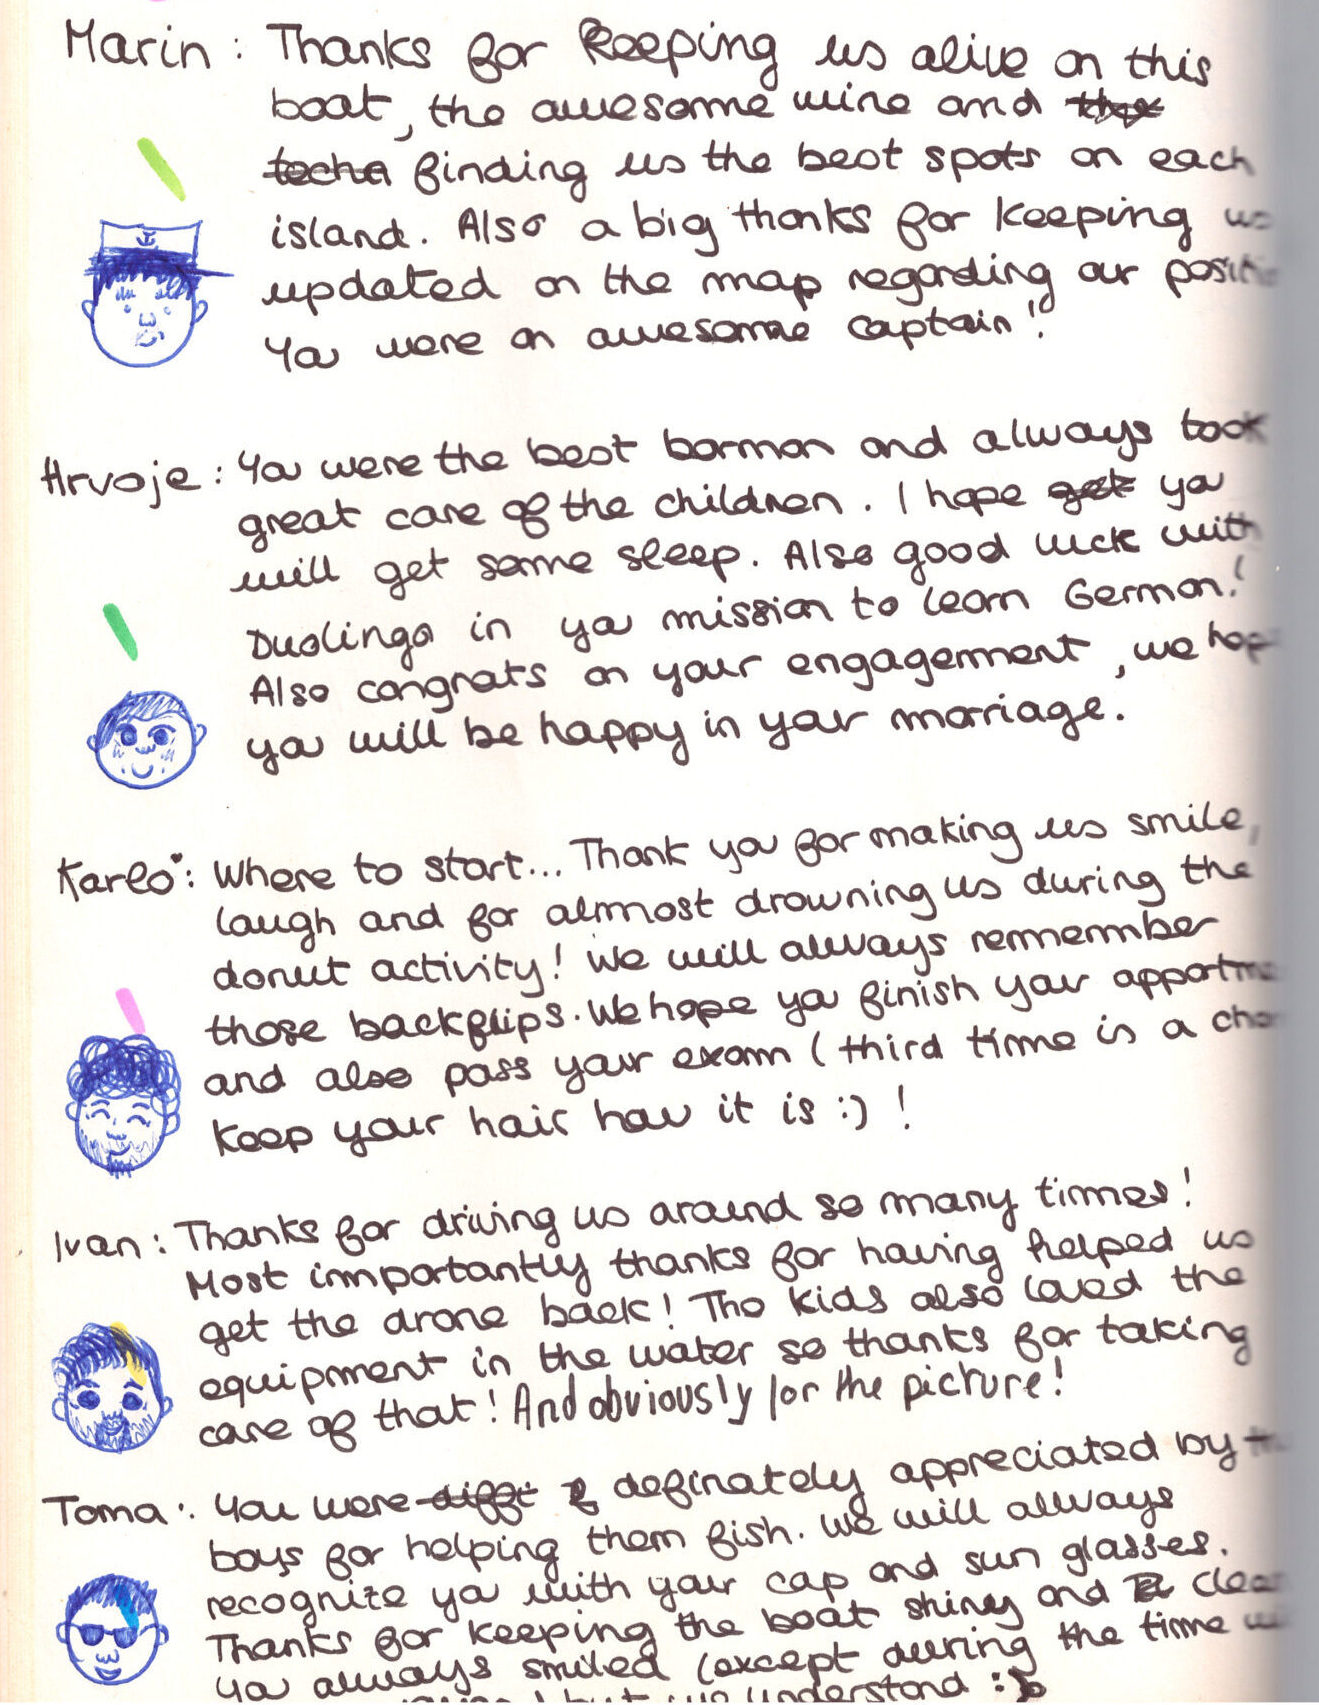 Marin : Thanks for keeping us alive on this
boat, the awesome wine and the
techa finding us the best spots on each
island. Also a big thanks for keeping us
updated on the map regarding our
You were an awesome captain!
Hrvoje : You were the best barman and always took
great care of the children. I hope get you
will get some sleep. Also good luck with
Duolingo in you mission to learn German!
Also congrats on your engagement, we hope
you will be happy in your marriage.
Karlo : Where to start... Thank you for making us smile,
laugh and for almost drowning us during the
donut activity! We will always remember
those backflips. We hope you finish your
and also pass your exam (third time is a
keep your hair how it is :) !
Ivan : Thanks for driving us around so many times!
Most importantly thanks for having helped us
get the drone back! The kids also loved the
equipment in the water so thanks for taking
care of that! And obviously for the picture!
Toma : You were definately appreciated by the
boys for helping them fish. We will always
recognize you with your cap and sun glasses.
Thanks for keeping the boat shiny and
You always smiled (except during the time
but we understand :)